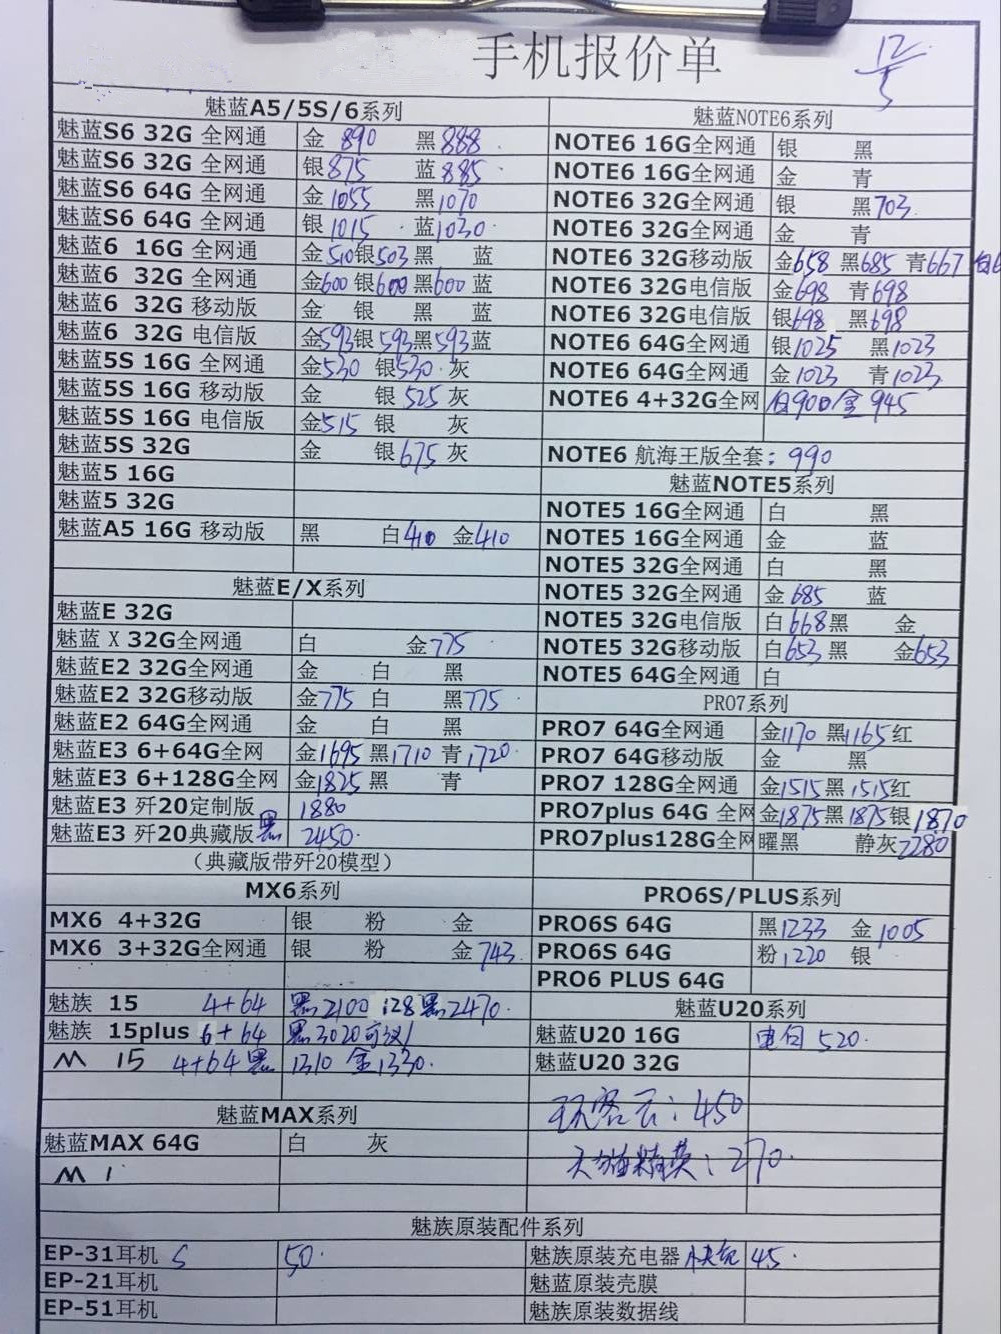 手机报价单
12/5
魅蓝A5/5S/6系列
魅蓝S6 32G 全网通 金 890 黑 888
魅蓝S6 32G 全网通 银 875 蓝 885
魅蓝S6 64G 全网通 金 1055 黑 1070
魅蓝S6 64G 全网通 银 1015 蓝 1030
魅蓝6 16G 全网通 金 510 银 503 黑 蓝
魅蓝6 32G 全网通 金 600 银 600 黑 600 蓝
魅蓝6 32G 移动版 金 银 黑 蓝
魅蓝6 32G 电信版 金 593 银 593 黑 593 蓝
魅蓝5S 16G 全网通 金 530 银 530 灰
魅蓝5S 16G 移动版 金 银 525 灰
魅蓝5S 16G 电信版 金 515 银 灰
魅蓝5S 32G 金 银 675 灰
魅蓝5 16G
魅蓝5 32G
魅蓝A5 16G 移动版 黑 白 410 金 410
魅蓝E/X系列
魅蓝E 32G
魅蓝 X 32G全网通 白 金 775
魅蓝E2 32G全网通 金 白 黑
魅蓝E2 32G移动版 金 775 白 黑 775
魅蓝E2 64G全网通 金 白 黑
魅蓝E3 6+64G全网 金 1695 黑 1710 青 1720
魅蓝E3 6+128G全网 金 1825 黑 青
魅蓝E3 歼20定制版 1880
魅蓝E3 歼20典藏版 黑 2450
（典藏版带歼20模型）
MX6系列
MX6 4+32G 银 粉 金
MX6 3+32G全网通 银 粉 金 743
魅族 15 4+64 黑 2100 128 黑 2470
魅族 15plus 6+64 黑 3020 可议
M 15 4+64 黑 1310 金 1330
魅蓝MAX系列
魅蓝MAX 64G 白 灰
M 1
魅蓝NOTE6系列
NOTE6 16G全网通 银 黑
NOTE6 16G全网通 金 青
NOTE6 32G全网通 银 黑 703
NOTE6 32G全网通 金 青
NOTE6 32G移动版 金 658 黑 685 青 667
NOTE6 32G电信版 金 698 青 698
NOTE6 32G电信版 银 698 黑 698
NOTE6 64G全网通 银 1025 黑 1023
NOTE6 64G全网通 金 1023 青 1023
NOTE6 4+32G全网 白 900 金 945
NOTE6 航海王版全套：990
魅蓝NOTE5系列
NOTE5 16G全网通 白 黑
NOTE5 16G全网通 金 蓝
NOTE5 32G全网通 白 黑
NOTE5 32G全网通 金 685 蓝
NOTE5 32G电信版 白 668 黑 金
NOTE5 32G移动版 白 653 黑 金 653
NOTE5 64G全网通 白
PRO7系列
PRO7 64G全网通 金 1170 黑 1165 红
PRO7 64G移动版 金 黑
PRO7 128G全网通 金 1515 黑 1515 红
PRO7plus 64G 全网 金 1875 黑 1875 银 1870
PRO7plus128G全网 曜黑 静灰 2280
PRO6S/PLUS系列
PRO6S 64G 黑 1233 金 1005
PRO6S 64G 粉 1220 银
PRO6 PLUS 64G
魅蓝U20系列
魅蓝U20 16G 电白 520
魅蓝U20 32G
玩客云：450
天猫精灵：270
魅族原装配件系列
EP-31耳机 50
EP-21耳机
EP-51耳机
魅族原装充电器 快充 45
魅蓝原装壳膜
魅族原装数据线